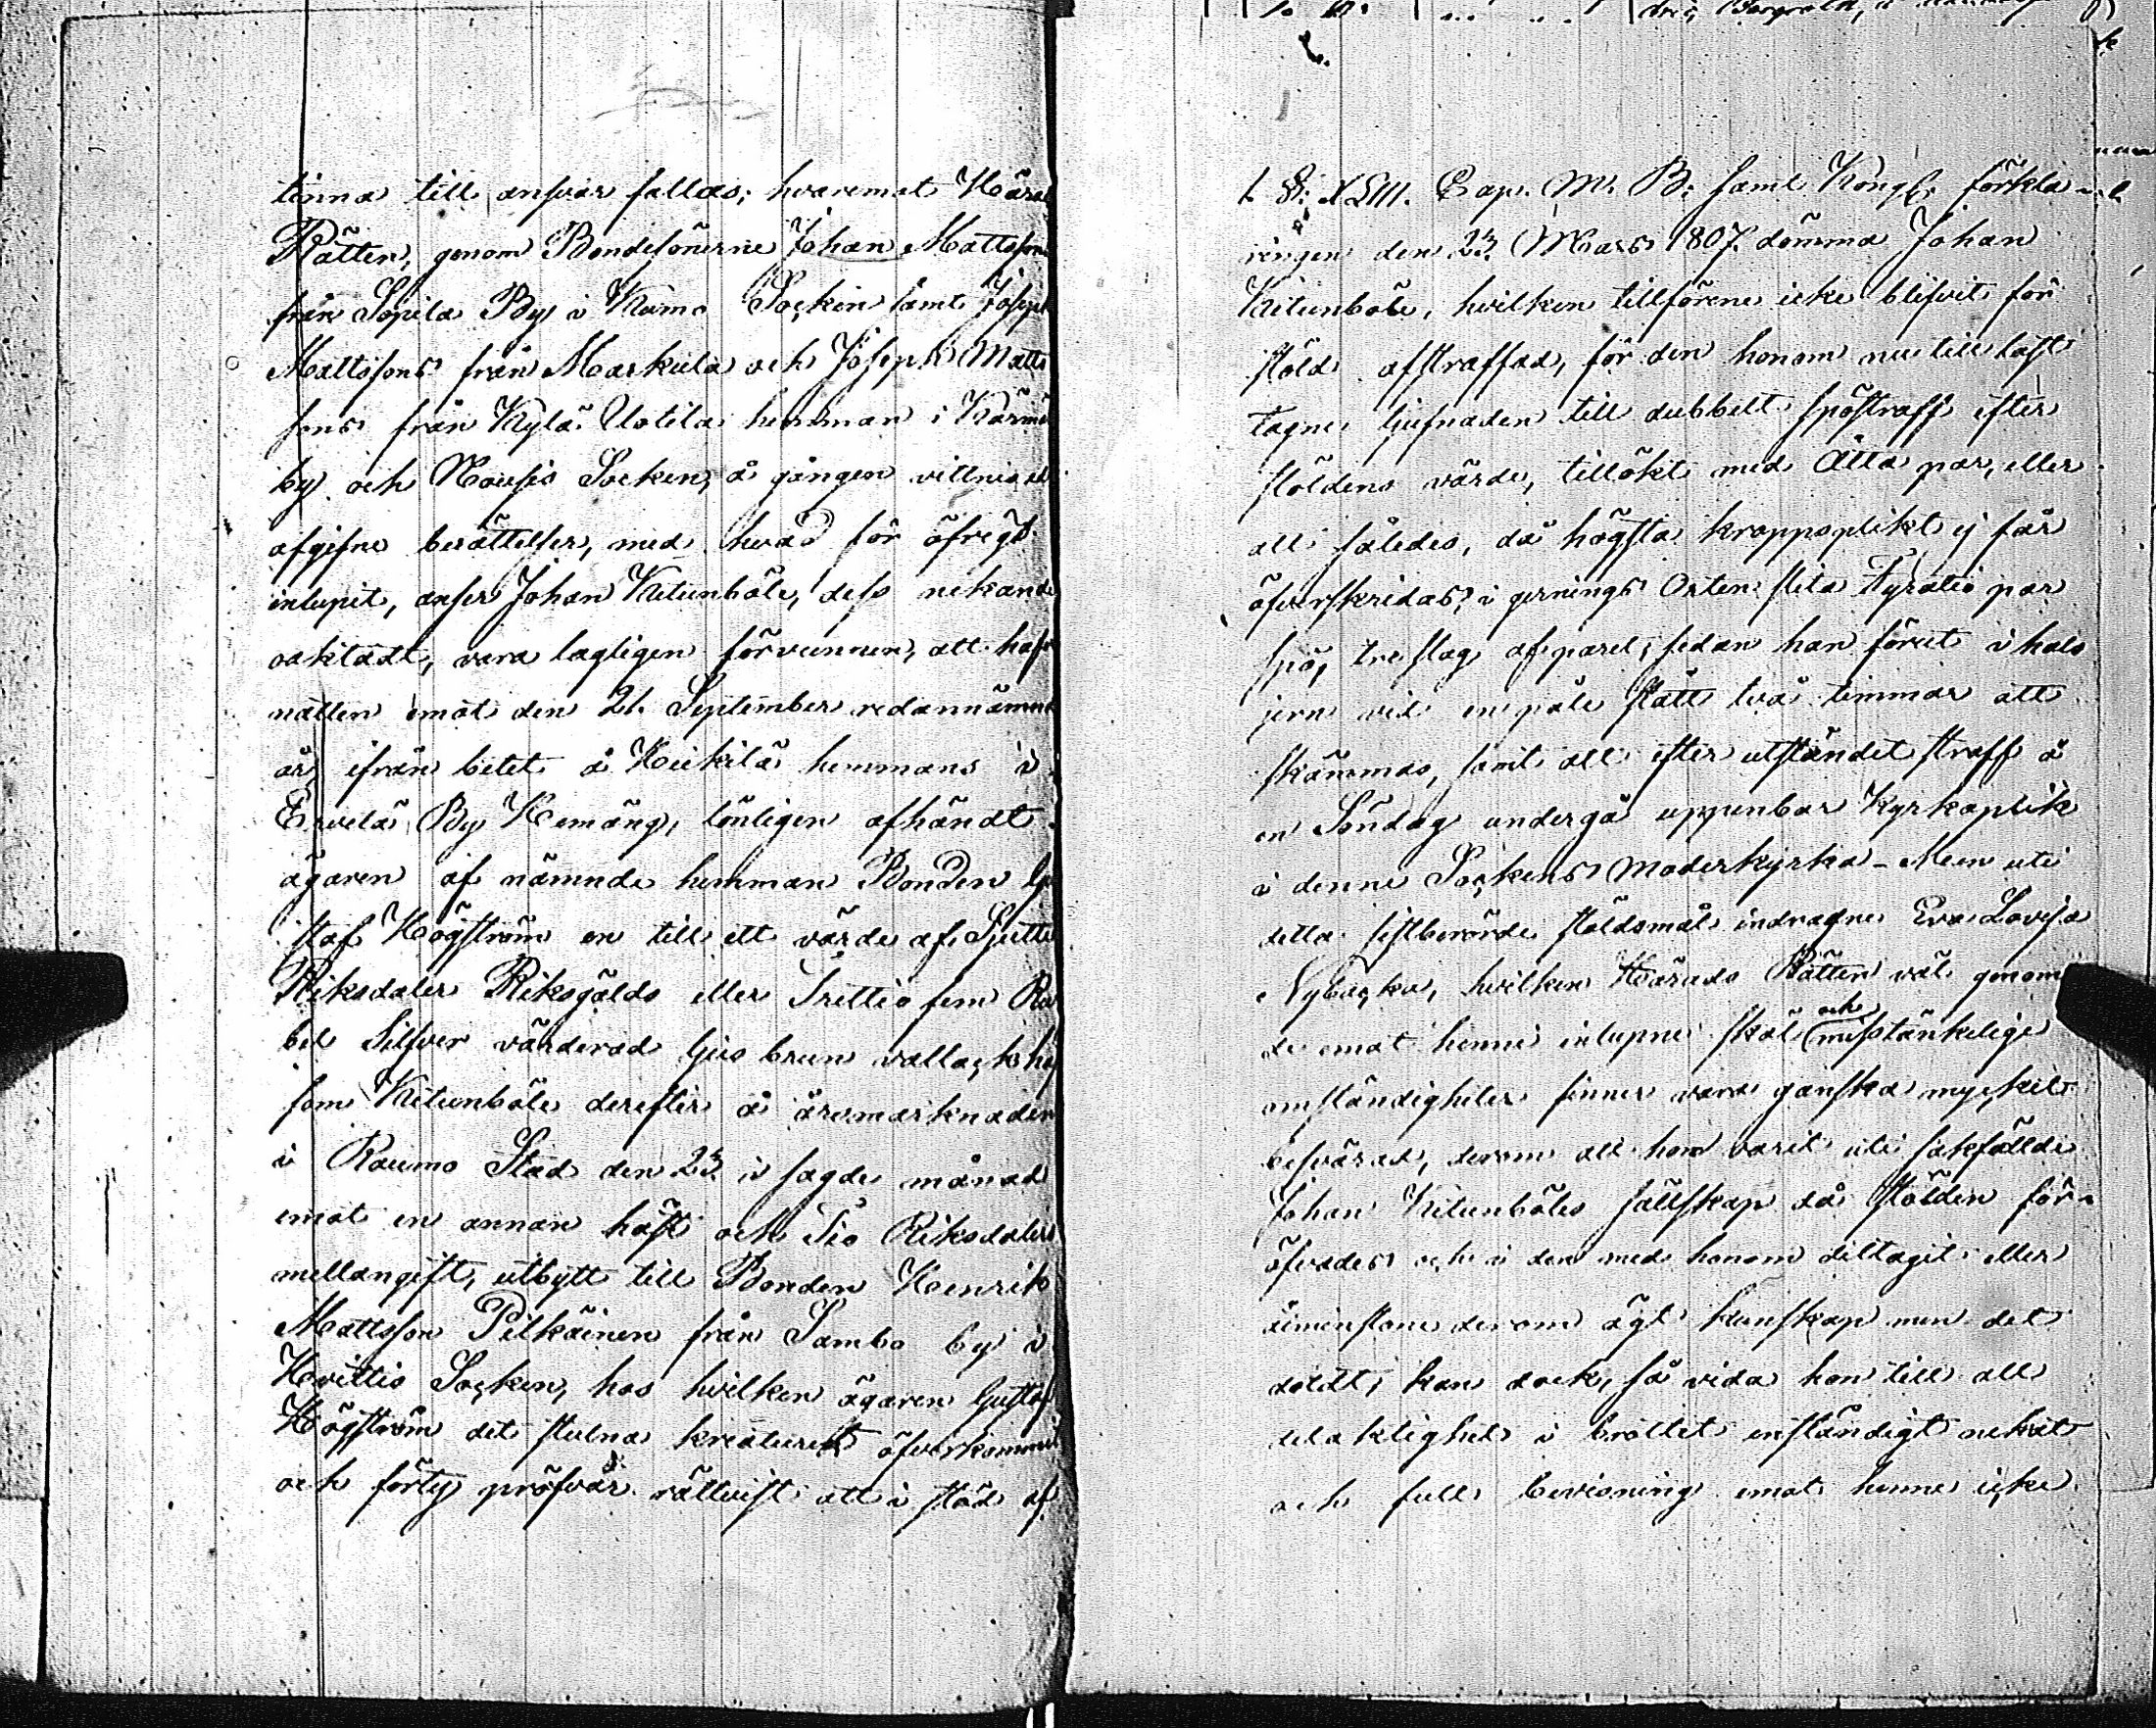 tinna till ansvar fällas; hvaremot Härad
Rätten, genom Bondesönerne Johan Mattssons
från Sopila By i Kumo Sockin samt Joseph
Mattssons från Markula och Joseph Matts
sons från Kylä Uotila hemman i Kärmä
by och Nousis Socken, å gången vittnes ed
afgifne berättelser, med hvad för öfrigt
inlupit, anser Johan Ketunböle, dess nekande
oaktadt, vara lagligen förvunnen, att hafva
natten emot den 21. September redannämnde
år, ifrån betet å Heikilä hemmans i
Ervelä By Hemäng, lönligen afhändt
ägaren af nämnde hemman Bonden Gu
staf Högström en till ett värde af Sjuttio
Riksdaler Riksgälds eller Trettio fem Ru
bel Silfver värderad ljus brun vallack häst
som Ketunböle derefter å årsmarknaden
i Raumo Stad den 23 i sagde månad
emot en annan häst och Tio Riksdaler
mellangift, utbytt till Bonden Henrik
Mattsson Pitkäinen från Sambo by i
Hvittis Socken, hos hvilken ägaren Gustaf
Högström det stulna kreaturet öfverkommit
och förty pröfvar rättvist att i stöd af
1 §. XLIII. Cap. M. B. samt Kongl. förkla-
ringen den 23 Mars 1807. dömma Johan
Ketunböle, hvilken tillförene icke blifvit för
stöld afstraffad, för den honom nu till last
tagne tjufnaden till dubbelt spöstraff efter
stöldens värde, tillökt med Åtta par, eller
att således, då högsta kroppsplikt ej får
öfverskridas, i gernings Orten slita Fyratio par
spö, tre slag af paret, sedan han förut i hals
jern vid en påle stått två timmar att
skämmas, samt att efter utståndet straff å
en Söndag undergå uppenbar Kyrkoplikt
i denne Sockens Moderkyrka - Men uti
detta sistberörde stöldsmål indragne Eva Lovisa
Nybacka, hvilken Härads Rätten väl genom
de emot henne inlupne skäl och misstänkelige
omständigheter finner vara ganska mycket
besvärad, derom att hon varit uti sakfällde
Johan Ketunböles sällskap då stölden för-
öfvades och i den med honom deltagit eller
åminstone derom ägt kunskap men det
doldt, kan dock, så vida hon till all
delaktighet i brottet enständigt nekat
och full bevisning emot henne icke